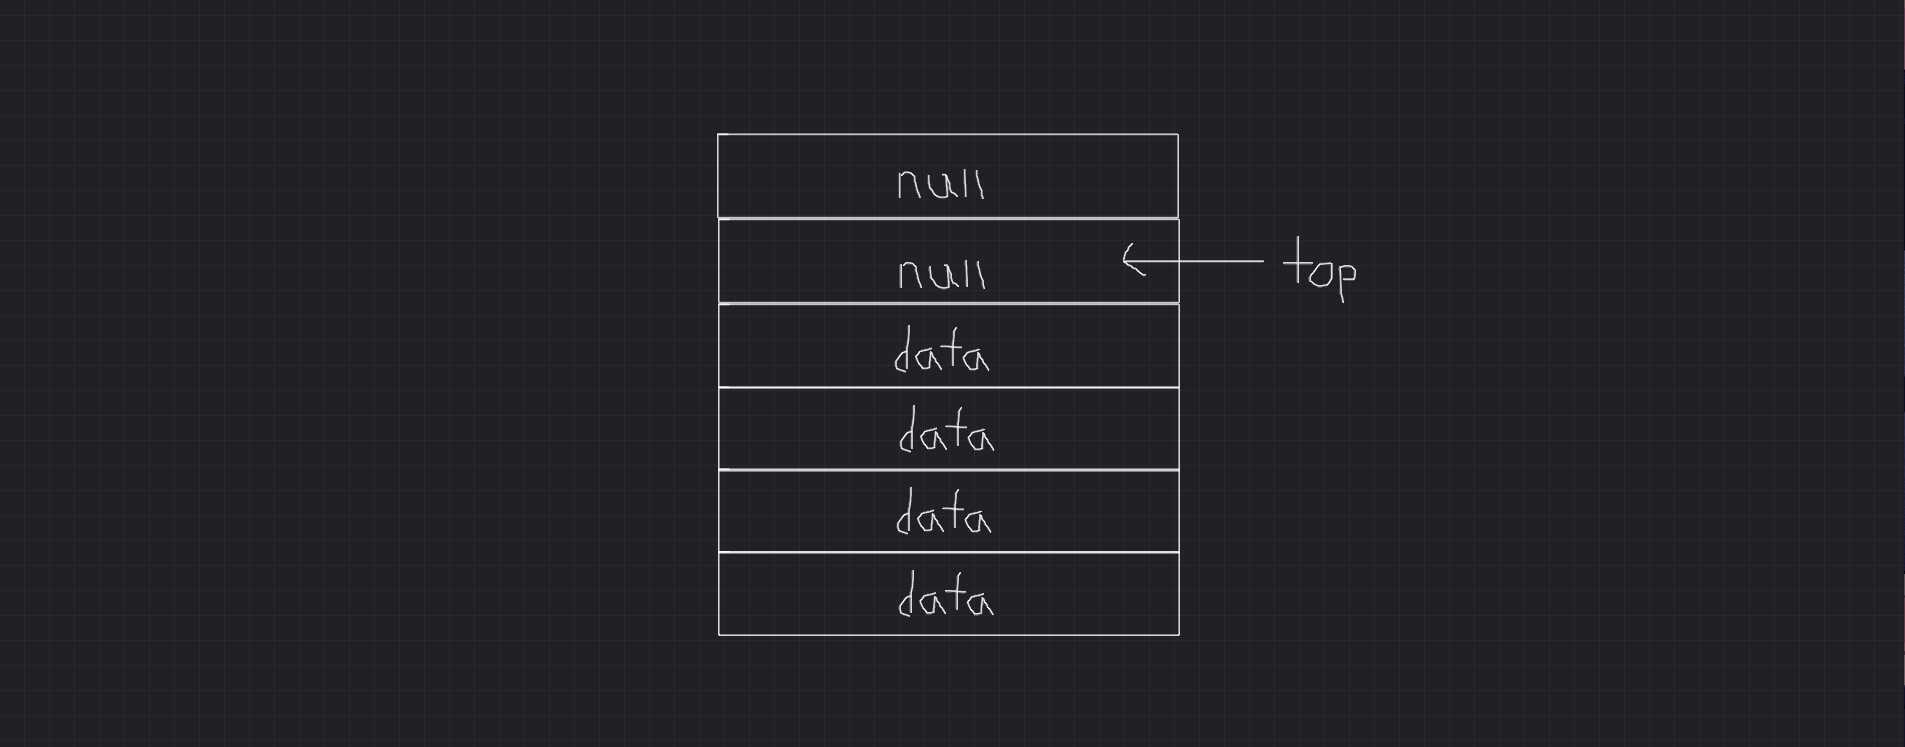 null
null top
data
data
data
data